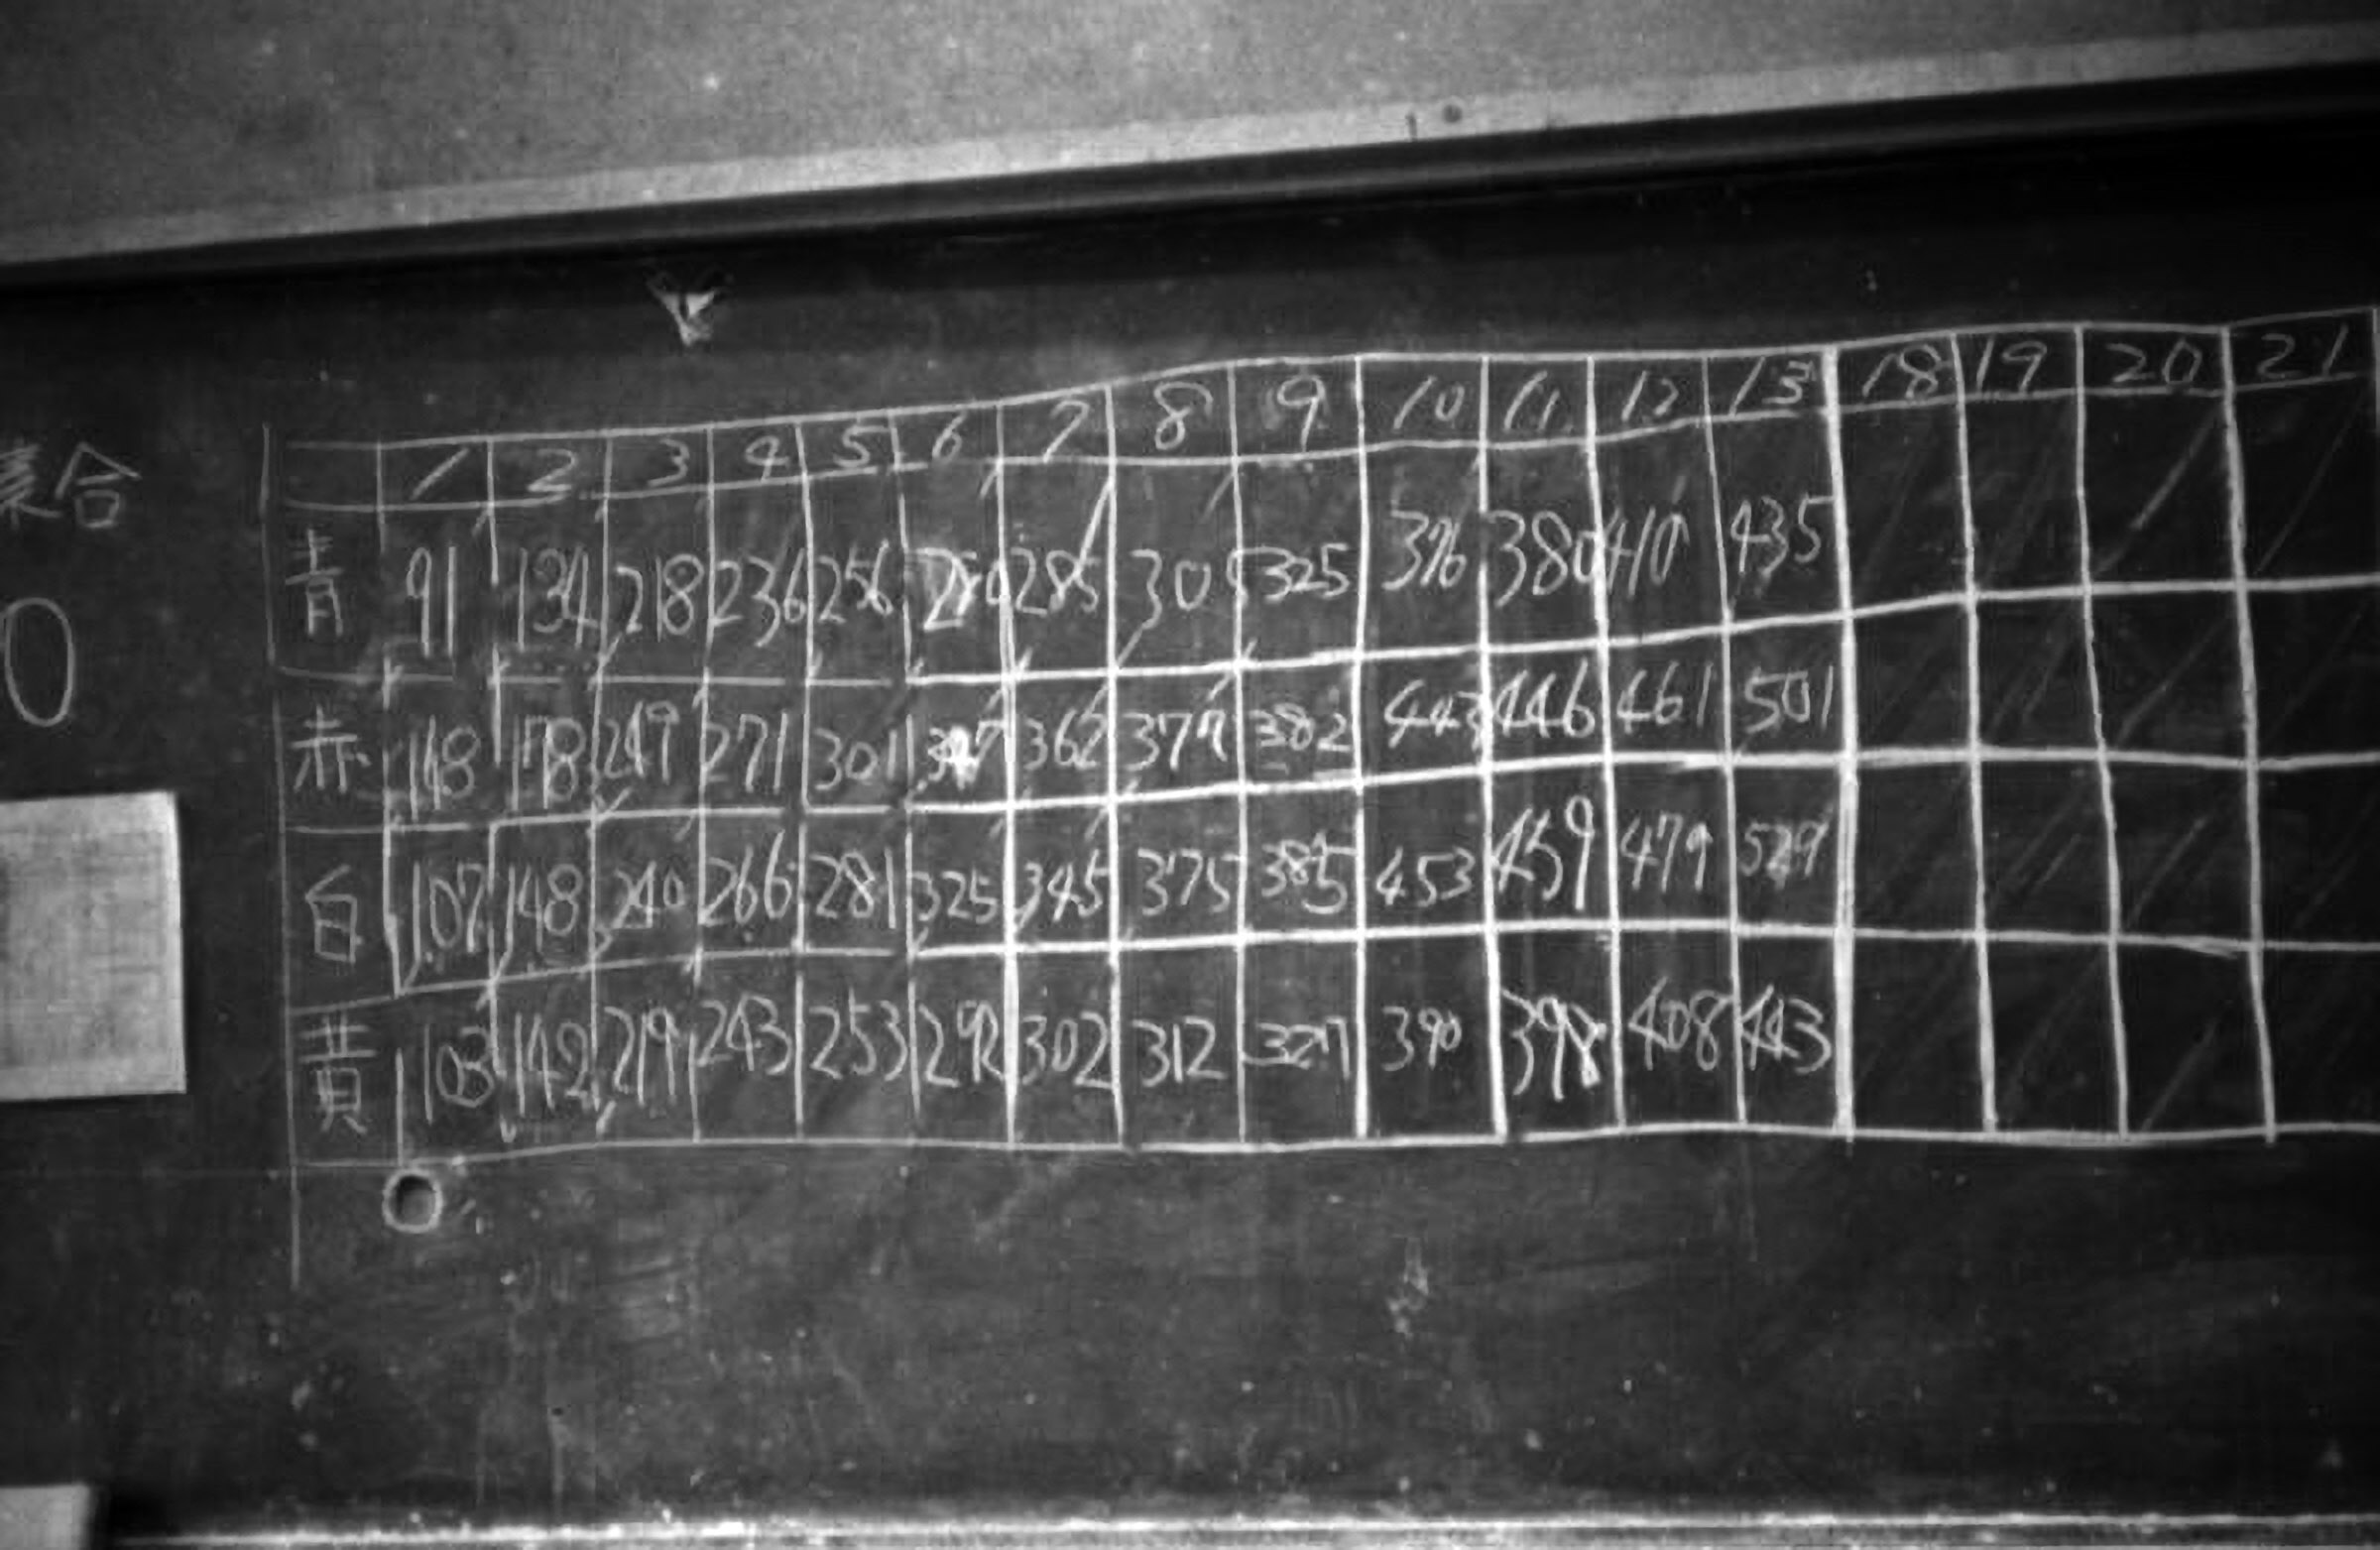 集合
0
1 2 3 4 5 6 7 8 9 10 11 12 13 18 19 20 21
青 91 134 218 236 256 280 285 305 325 376 380 410 435
赤 148 178 249 271 301 362 377 382 443 446 461 501
白 107 148 240 266 281 325 345 375 385 453 459 479 529
黄 103 142 219 243 253 292 302 312 327 390 398 408 443